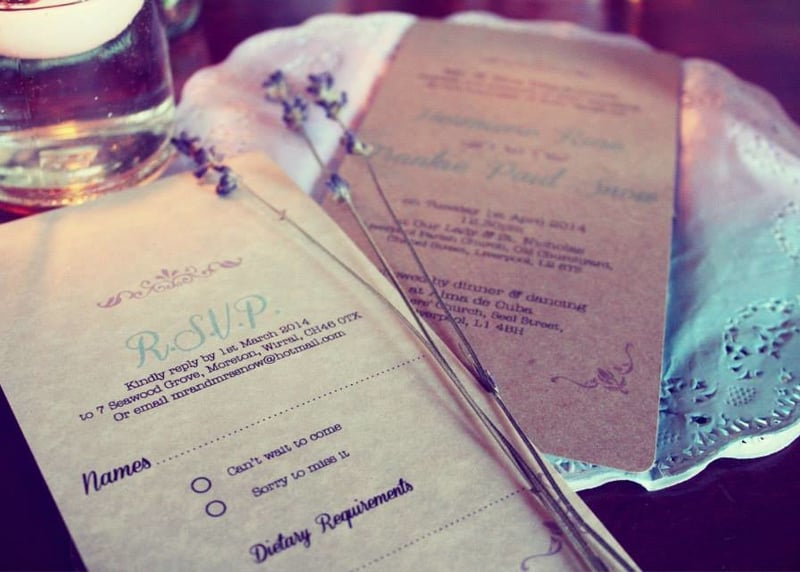 R.S.V.P.
Kindly reply by 1st March 2014
to 7 Seawood Grove, Moreton, Wirral, CH46 0TX
Or email mrandmrssnow@hotmail.com
Names
Can't wait to come
Sorry to miss it
Dietary Requirements
Paul Snow
on Tuesday 1st April 2014
12.30pm
at Our Lady & St. Nicholas
Parish Church, Old Churchyard,
Chapel Street, Liverpool, L2
by dinner & dancing
at Alma de Cuba
Church, Seel Street,
Liverpool, L1 4BH